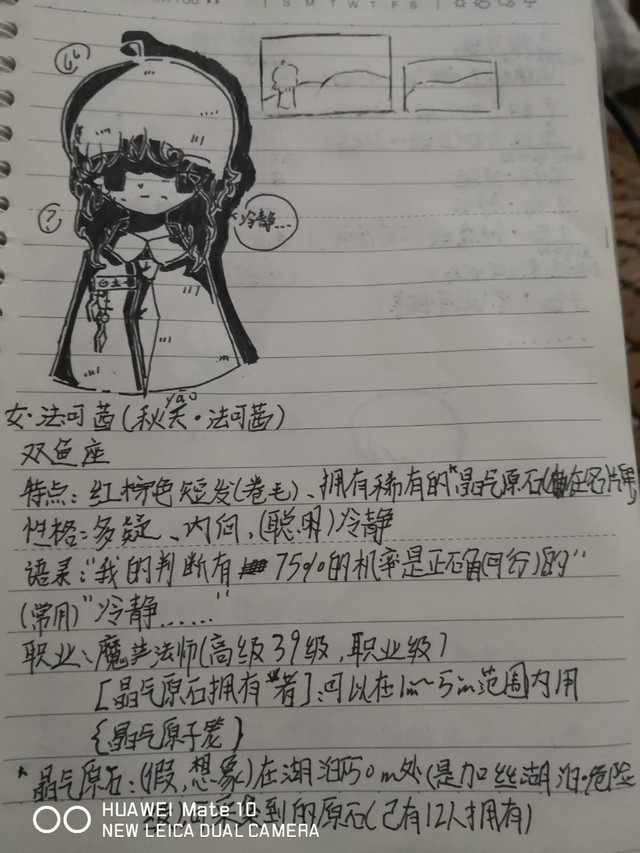 S M T W T F S
?
冷静...
yāo
女·法可茜(秋夭·法可茜)
双鱼座
特点:红棕色短发(卷毛)、拥有稀有的*晶气原石(在名片里
性格:多疑、内向,(聪明)冷静
语录:"我的判断有75%的机率是正确(可行)的"
(常用)"冷静......"
职业:魔法师(高级39级,职业级)
[晶气原石拥有者]:可以在1m~5m范围内用
{晶气原子笼}
*晶气原石:(假,想象)在湖泊50m处(是加丝湖泊·危险
到的原石(已有12人拥有)
HUAWEI Mate 10
NEW LEICA DUAL CAMERA